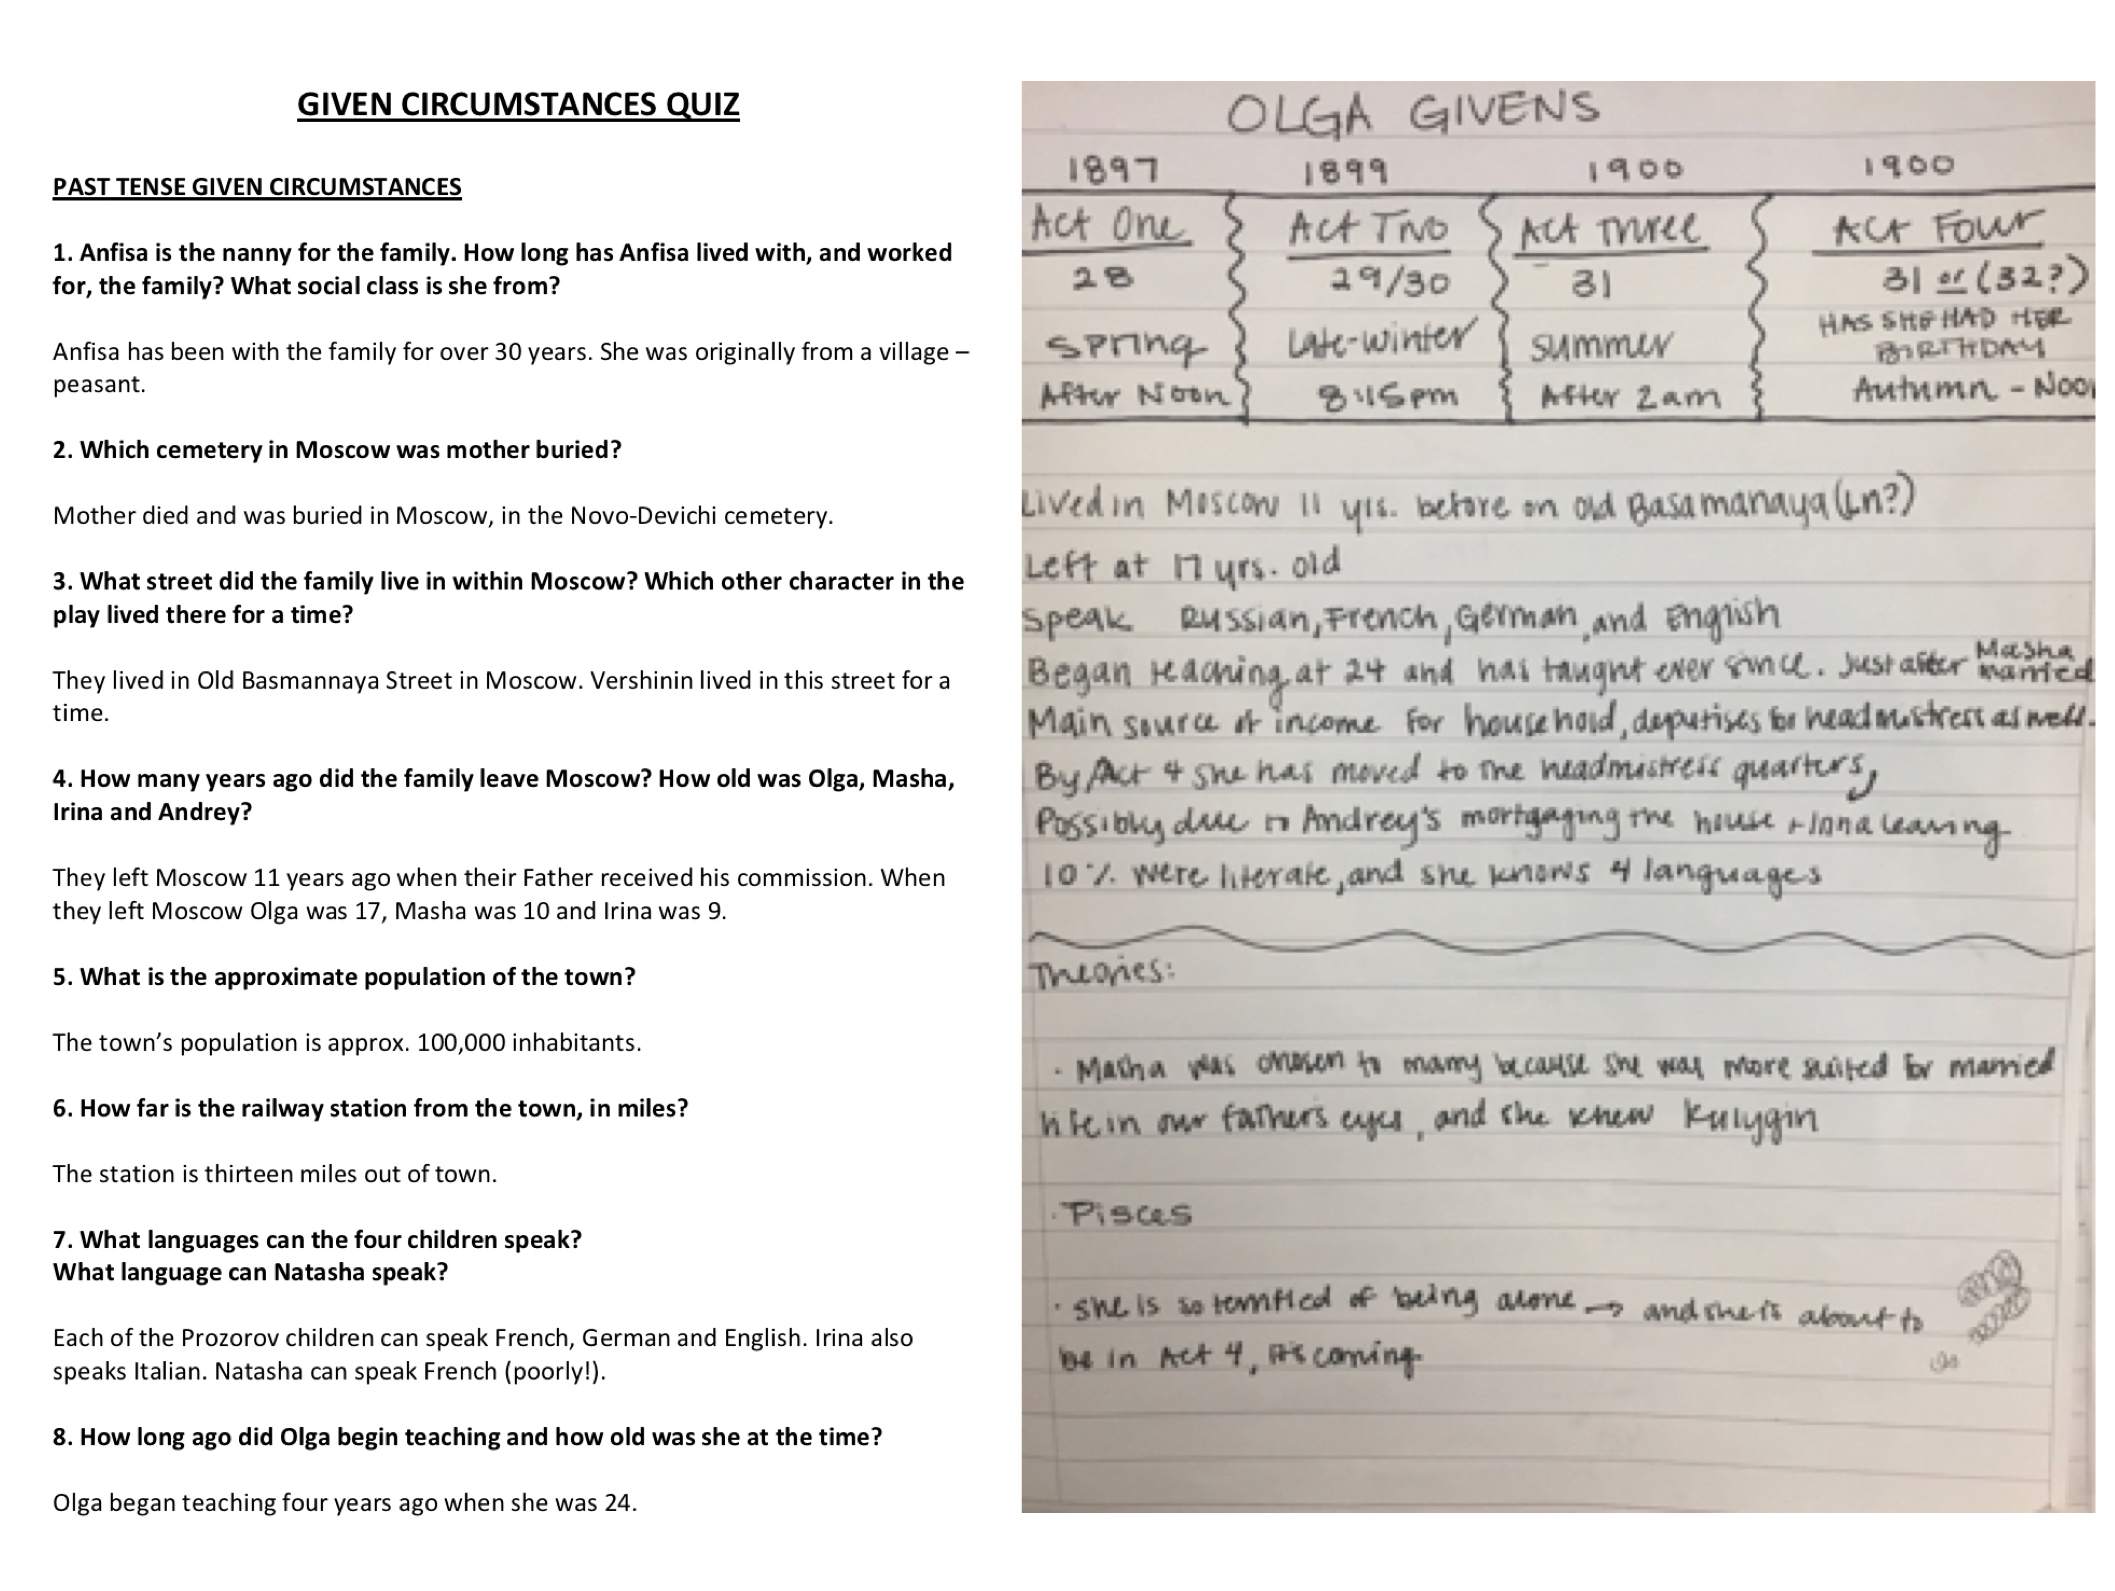 GIVEN CIRCUMSTANCES QUIZ
PAST TENSE GIVEN CIRCUMSTANCES
1. Anfisa is the nanny for the family. How long has Anfisa lived with, and worked
for, the family? What social class is she from?
Anfisa has been with the family for over 30 years. She was originally from a village –
peasant.
2. Which cemetery in Moscow was mother buried?
Mother died and was buried in Moscow, in the Novo-Devichi cemetery.
3. What street did the family live in within Moscow? Which other character in the
play lived there for a time?
They lived in Old Basmannaya Street in Moscow. Vershinin lived in this street for a
time.
4. How many years ago did the family leave Moscow? How old was Olga, Masha,
Irina and Andrey?
They left Moscow 11 years ago when their Father received his commission. When
they left Moscow Olga was 17, Masha was 10 and Irina was 9.
5. What is the approximate population of the town?
The town’s population is approx. 100,000 inhabitants.
6. How far is the railway station from the town, in miles?
The station is thirteen miles out of town.
7. What languages can the four children speak?
What language can Natasha speak?
Each of the Prozorov children can speak French, German and English. Irina also
speaks Italian. Natasha can speak French (poorly!).
8. How long ago did Olga begin teaching and how old was she at the time?
Olga began teaching four years ago when she was 24.
OLGA GIVENS
1897 1899 1900 1900
Act One Act Two Act Three Act Four
28 29/30 31 31 or (32?)
HAS SHE HAD HER
BIRTHDAY
Spring Late-winter summer
After Noon 8:15pm After 2am Autumn - Noon
Lived in Moscow 11 yrs. before on old Basamanaya (Ln?)
Left at 17 yrs. old
Speak Russian, French, German, and English
Began teaching at 24 and has taught ever since. Just after Masha married
Main source of income for household, deputises for headmistress as well.
By Act 4 she has moved to the headmistress quarters,
Possibly due to Andrey's mortgaging the house + Irina leaving
10% were literate, and she knows 4 languages
Theories:
· Masha was chosen to marry because she was more suited for married
life in our father's eyes, and she knew Kulygin
· Pisces
· she is so terrified of being alone → and she is about to
be in Act 4, it's coming